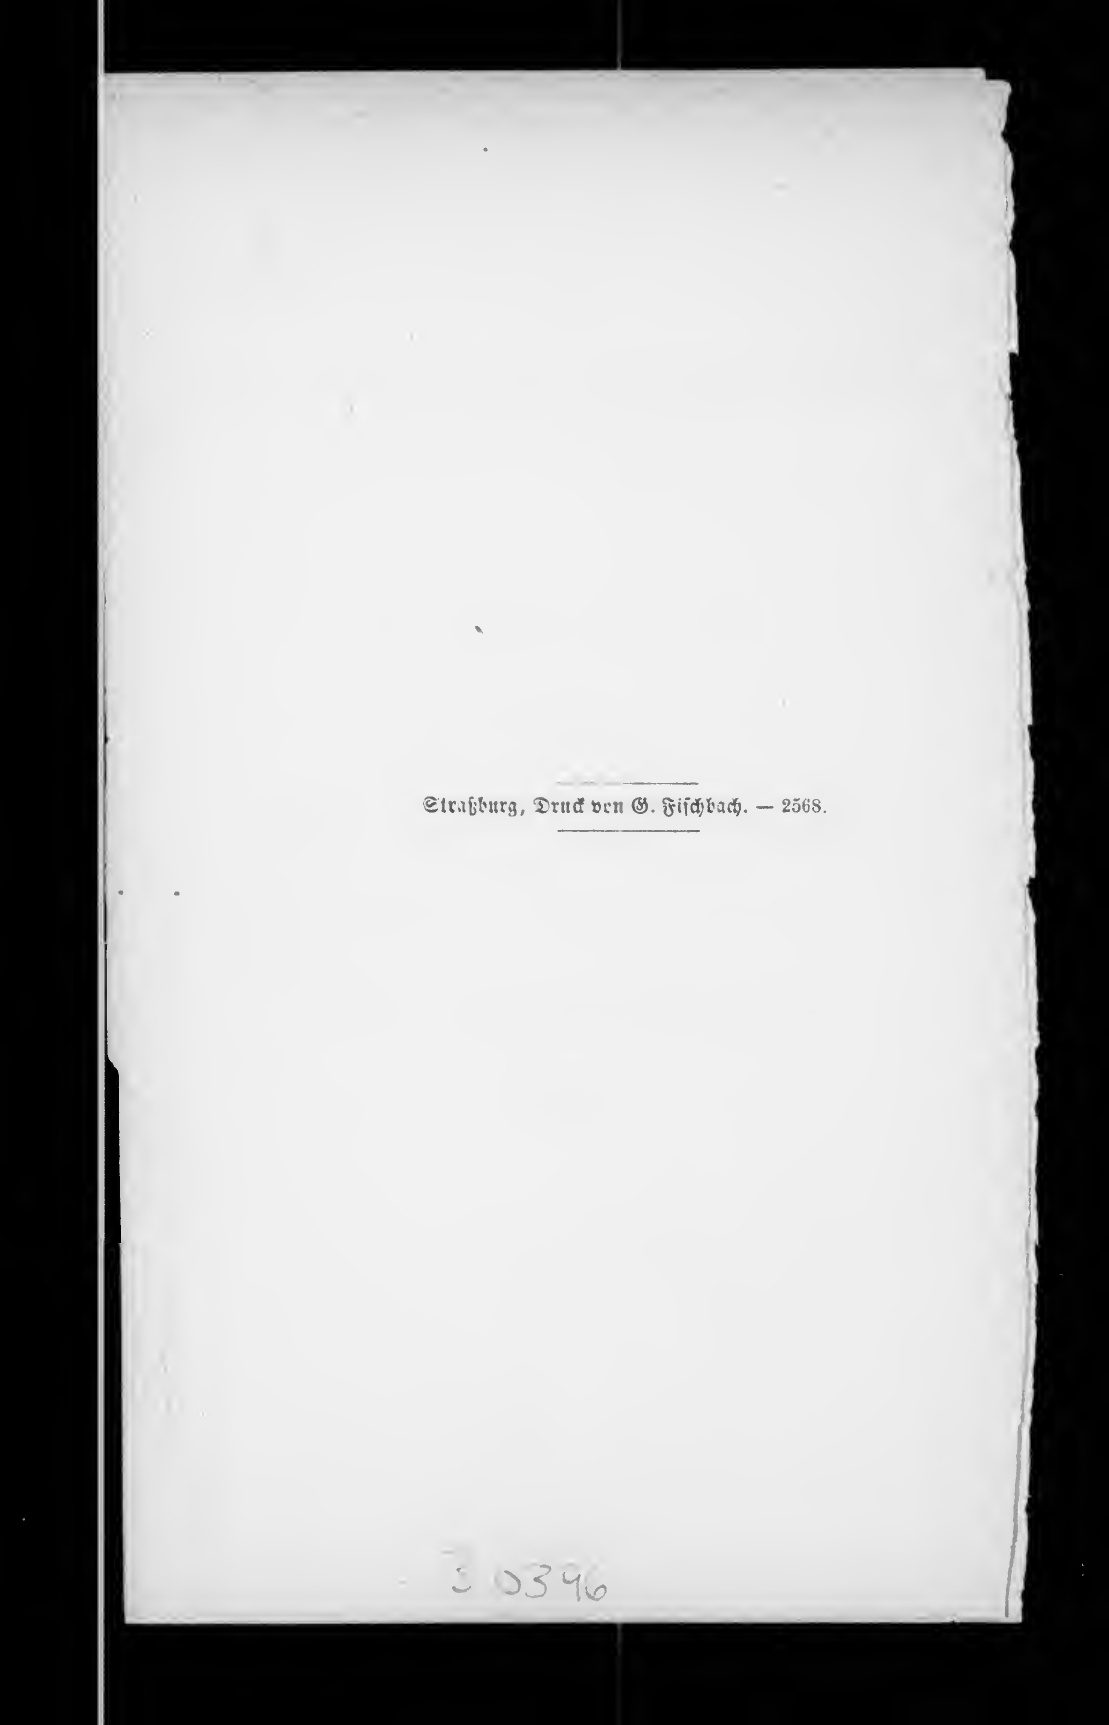 Straßburg, Druck von G. Fischbach. — 2568.
30396